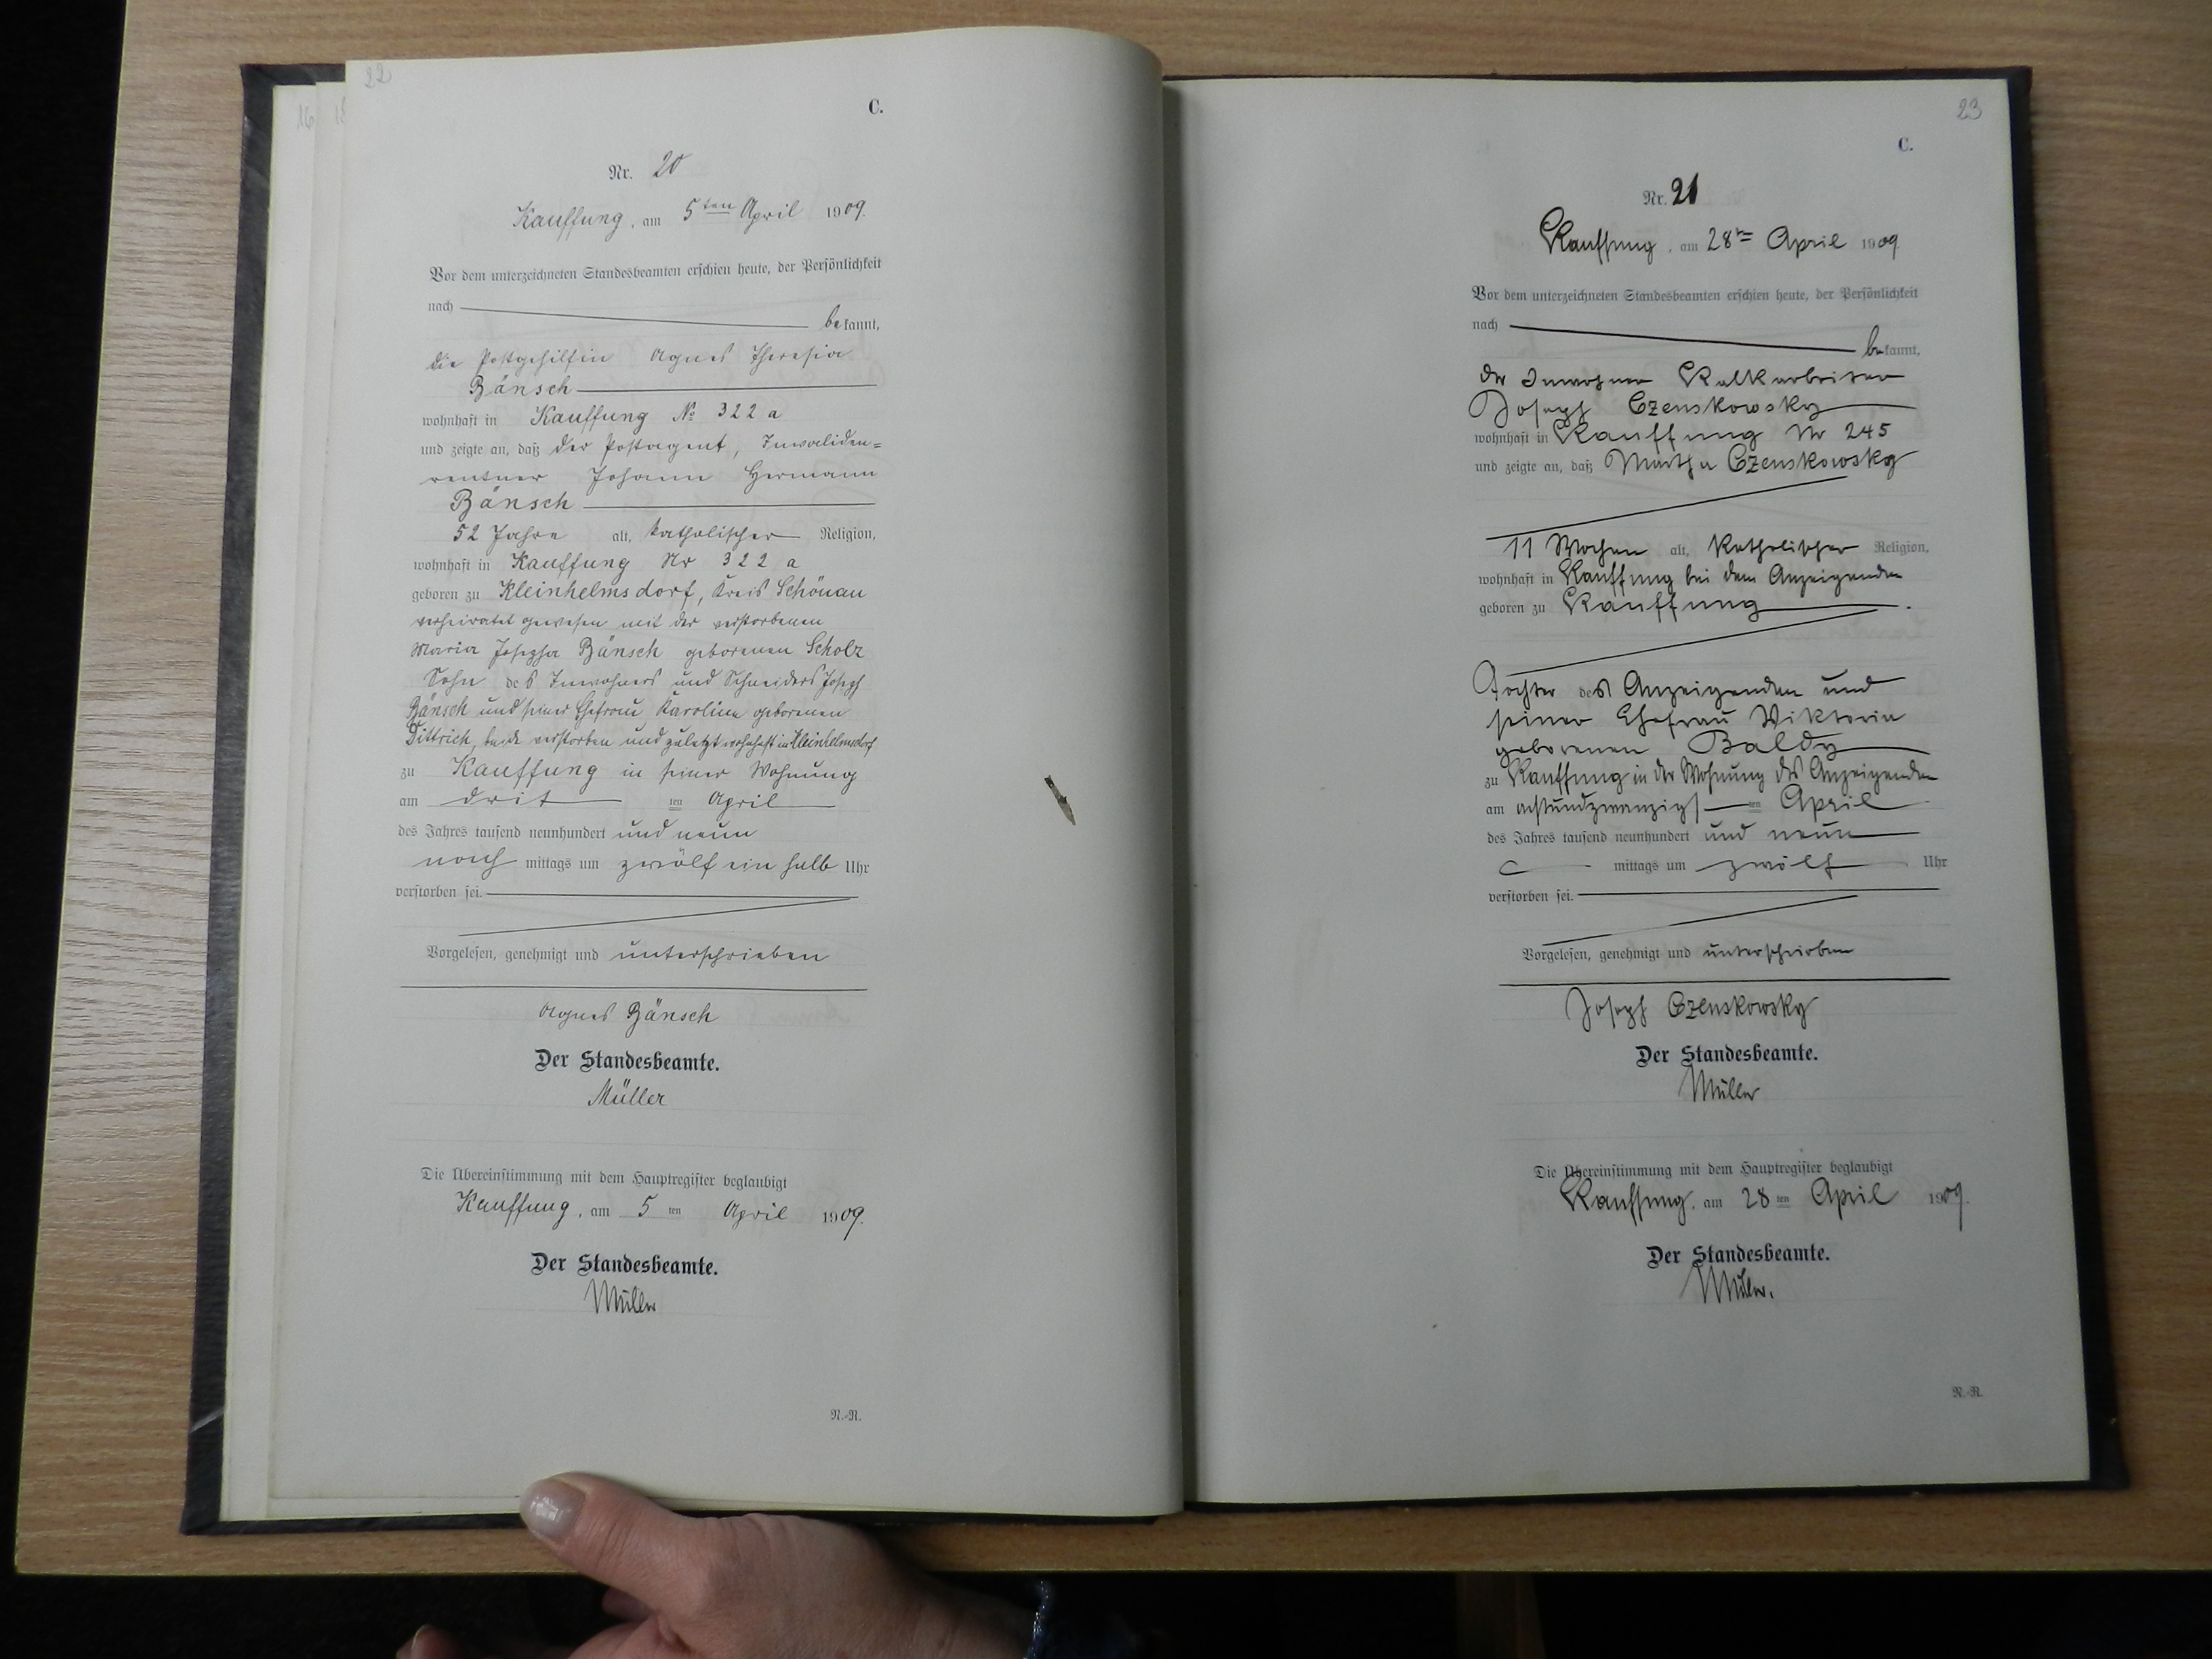 22
16
C.
Nr. 20
Kauffung, am 5ten April 1909.
Vor dem unterzeichneten Standesbeamten erschien heute, der Persönlichkeit
nach bekannt,
die Postgehilfin Agnes Theresia
Bänsch
wohnhaft in Kauffung No 322 a
und zeigte an, daß der Postagent, Invaliden=
rentner Johann Hermann
Bänsch
52 Jahre alt, katholischer Religion,
wohnhaft in Kauffung Nr 322 a
geboren zu Kleinhelmsdorf, Kreis Schönau
verheiratet gewesen mit der verstorbenen
Maria Josepha Bänsch geborenen Scholz
Sohn des Inwohners und Schneiders Joseph
Bänsch und seiner Ehefrau Karoline geborenen
Dittrich, beide verstorben und zuletzt wohnhaft in Kleinhelmsdorf
zu Kauffung in seiner Wohnung
am dritten April
des Jahres tausend neunhundert und neun
nachmittags um zwölf ein halb Uhr
verstorben sei.
Vorgelesen, genehmigt und unterschrieben
Agnes Bänsch
Der Standesbeamte.
Müller
Die Übereinstimmung mit dem Hauptregister beglaubigt
Kauffung, am 5ten April 1909.
Der Standesbeamte.
Müller
N.-R.
23
C.
Nr. 21
Kauffung, am 28ten April 1909.
Vor dem unterzeichneten Standesbeamten erschien heute, der Persönlichkeit
nach bekannt,
der Inwohner Kalkarbeiter
Joseph Czenskowsky
wohnhaft in Kauffung Nr 245
und zeigte an, daß Martha Czenskowsky
11 Wochen alt, katholischer Religion,
wohnhaft in Kauffung bei dem Anzeigenden
geboren zu Kauffung.
Tochter des Anzeigenden und
seiner Ehefrau Viktoria
geborenen Baldy
zu Kauffung in der Wohnung des Anzeigenden
am achtundzwanzigsten April
des Jahres tausend neunhundert und neun
mittags um zwölf Uhr
verstorben sei.
Vorgelesen, genehmigt und unterschrieben
Joseph Czenskowsky
Der Standesbeamte.
Müller
Die Übereinstimmung mit dem Hauptregister beglaubigt
Kauffung, am 28ten April 1909.
Der Standesbeamte.
Müller.
N.-R.